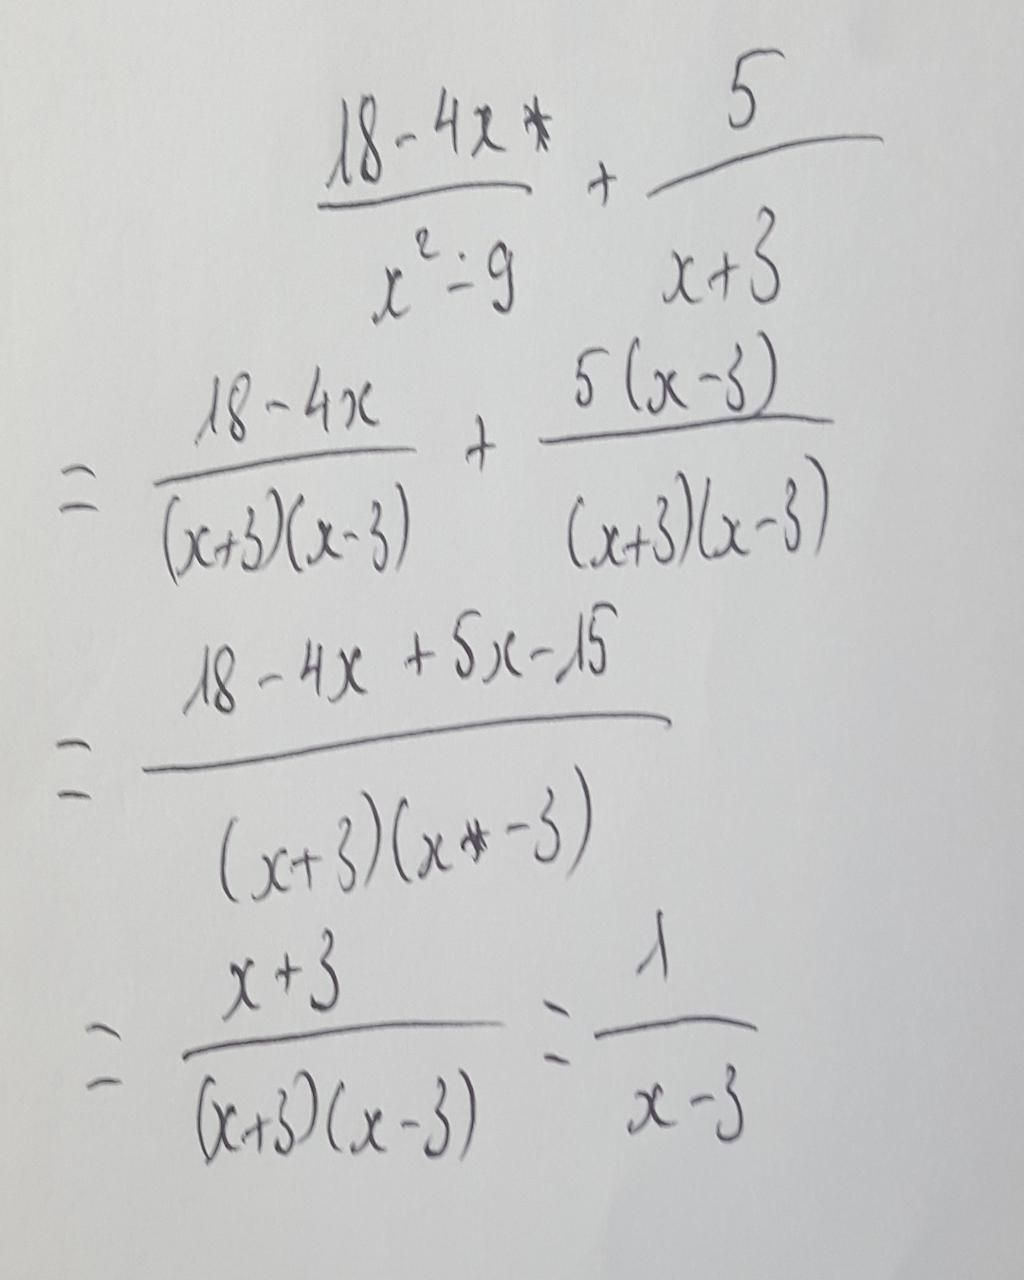 (18-4x)/(x²-9) + 5/(x+3)
= (18-4x)/((x+3)(x-3)) + 5(x-3)/((x+3)(x-3))
= (18-4x+5x-15)/((x+3)(x-3))
= (x+3)/((x+3)(x-3)) = 1/(x-3)